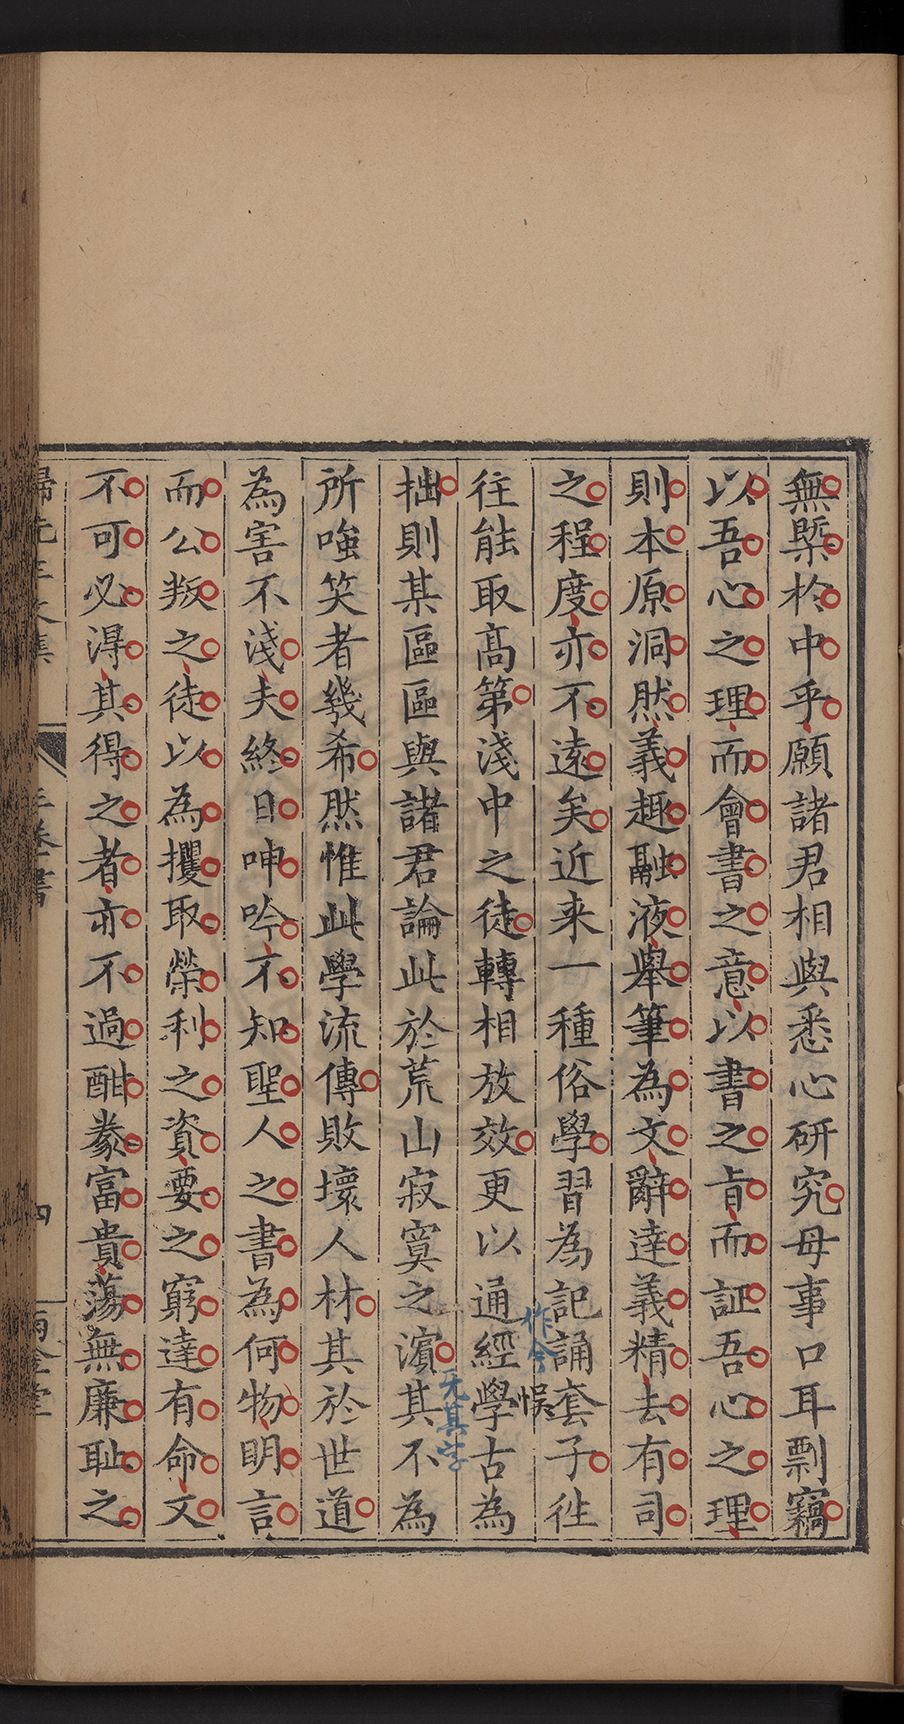 無槩於中乎願諸君相與悉心研究毋事口耳剽竊
以吾心之理而會書之意以書之旨而証吾心之理
則本原洞然義趣融液舉筆為文辭達義精去有司
之程度亦不遠矣近来一種俗學習為記誦套子徃
作今 悞
往能取髙第淺中之徒轉相放效更以通經學古為
拙則某區區與諸君論此於荒山寂寞之濵其不為
无其字
所嗤笑者幾希然惟此學流傳敗壞人材其於世道
為害不淺夫終日呻吟不知聖人之書為何物明言
而公叛之徒以為攫取榮利之資要之窮達有命文
不可必淂其得之者亦不過酣豢富貴蕩無廉耻之
四